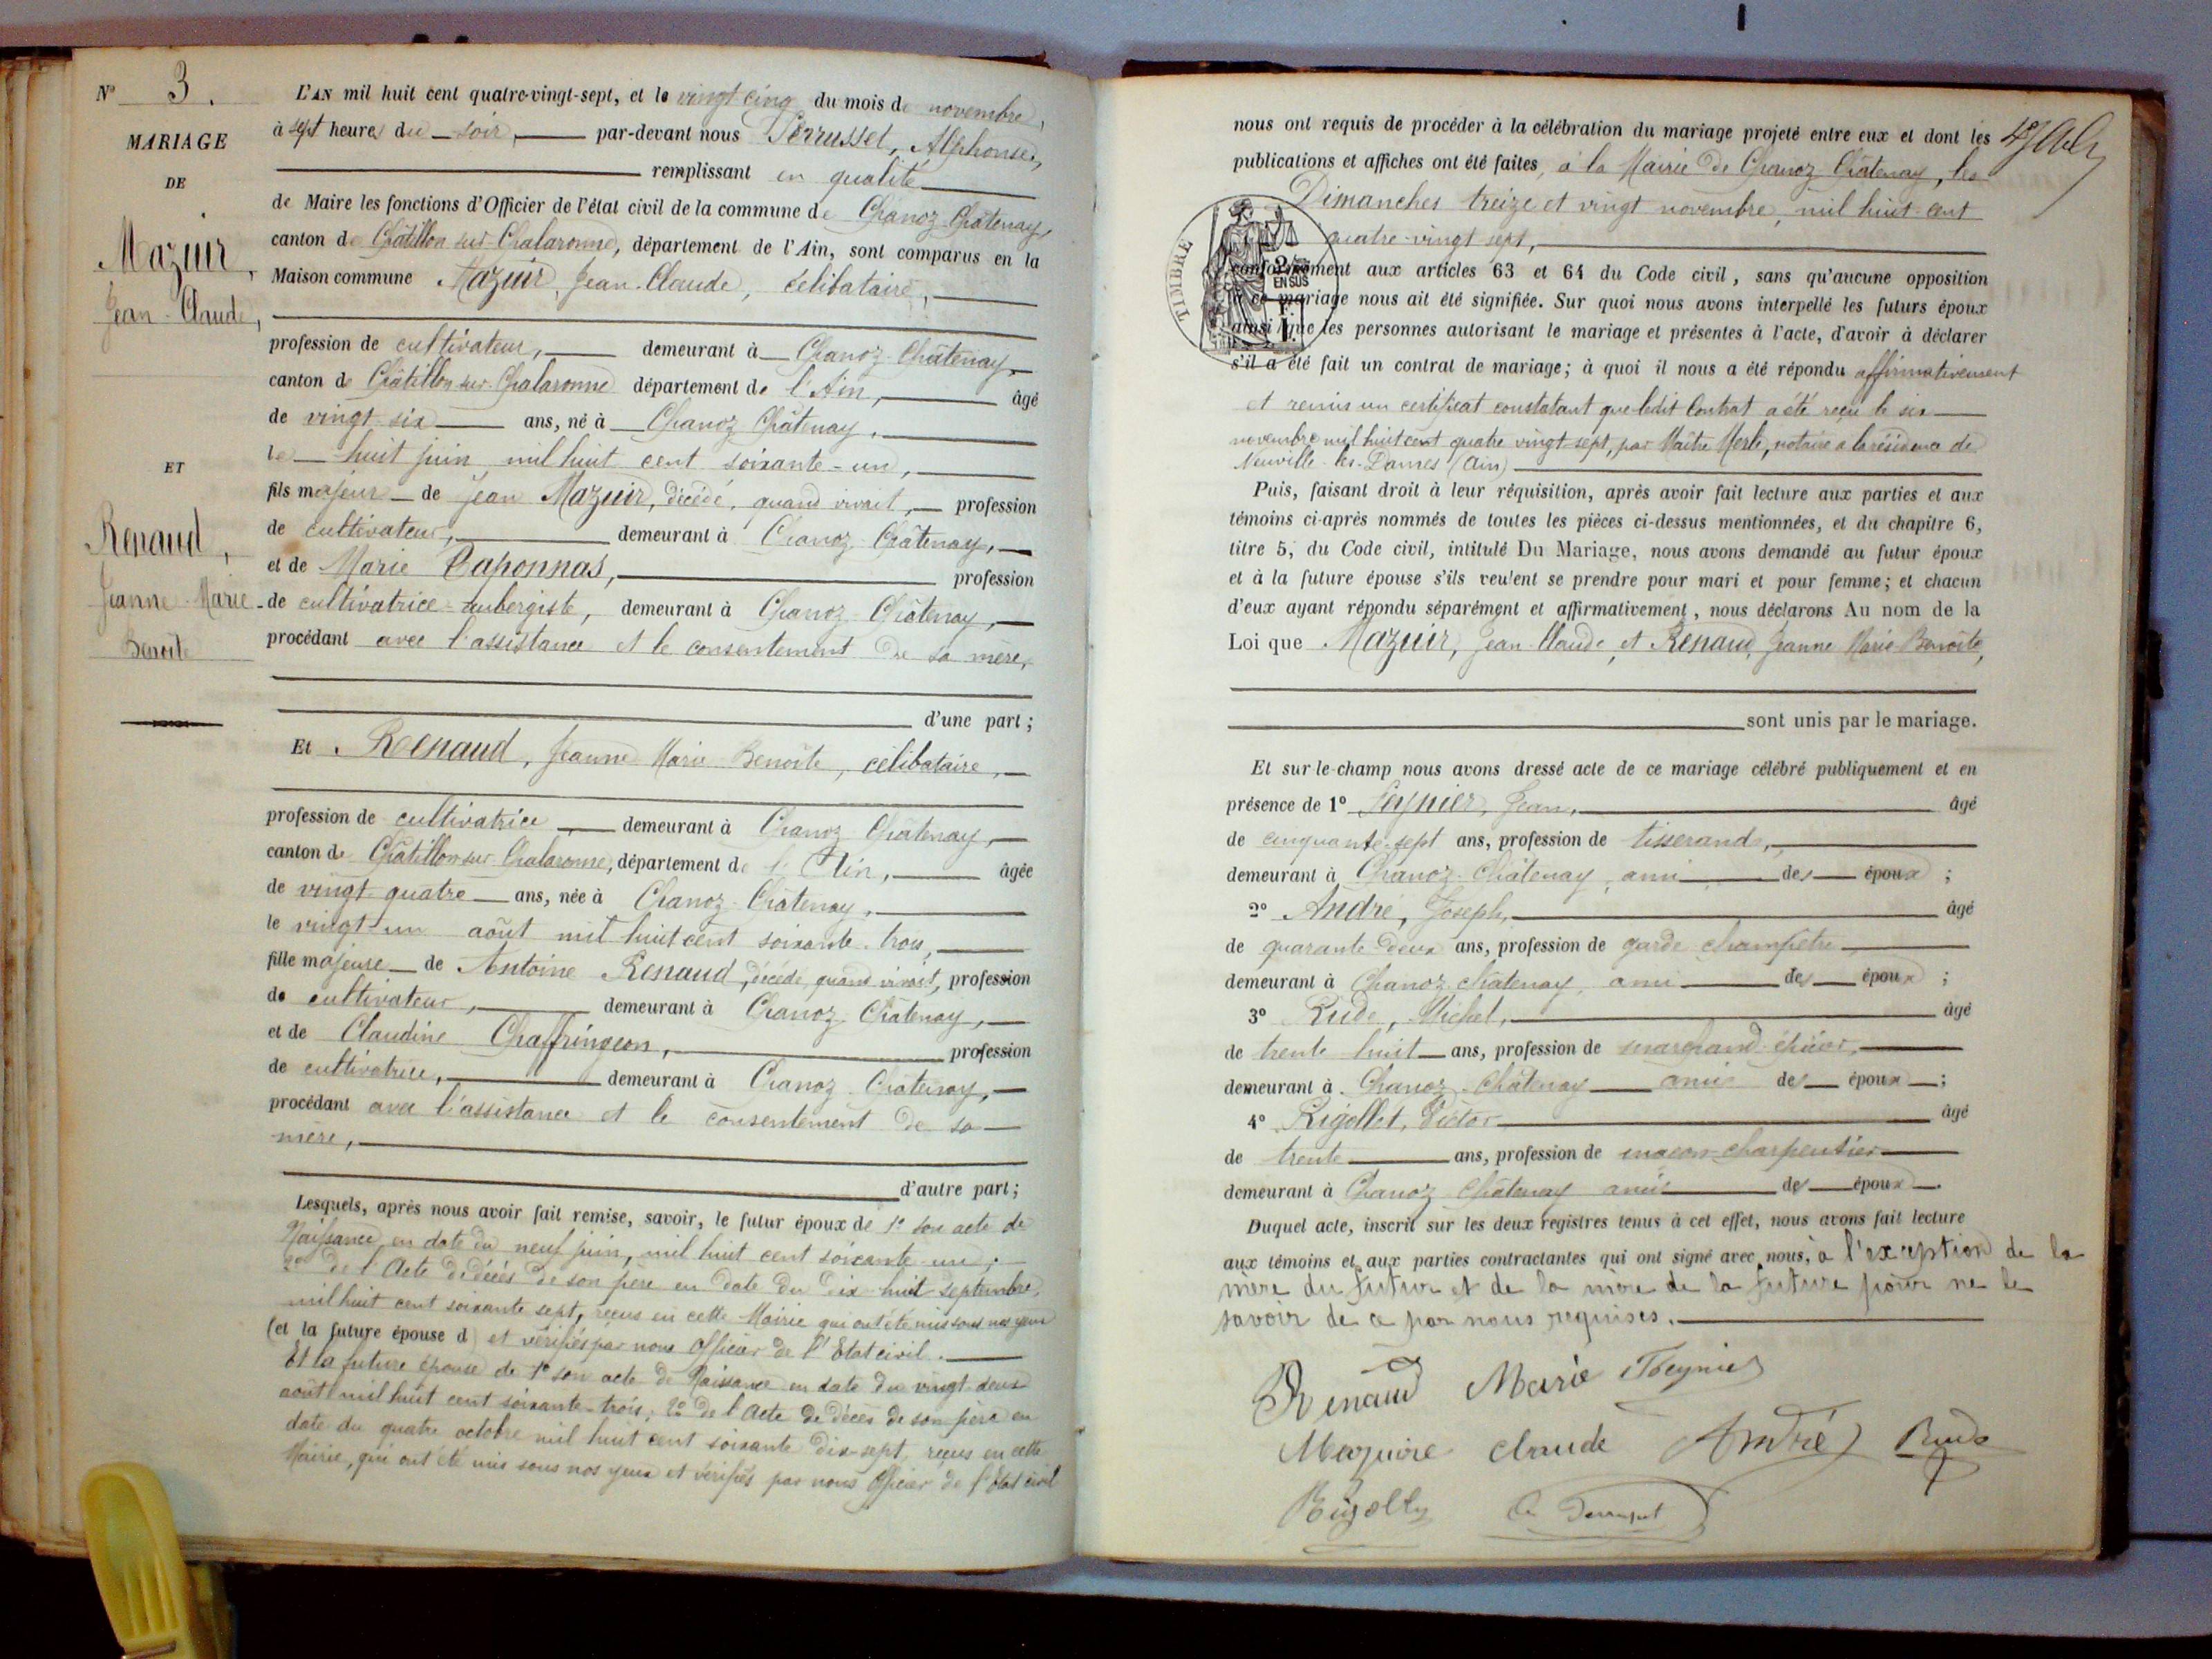 N° 3.
MARIAGE
DE
Mazuir,
Jean-Claude,
ET
Renaud,
Jeanne-Marie
Benoîte
L'AN mil huit cent quatre-vingt-sept, et le vingt cinq du mois de novembre,
à sept heures du soir, par-devant nous Perrussel, Alphonse,
remplissant en qualité
de Maire les fonctions d'Officier de l'état civil de la commune de Chanoz-Châtenay,
canton de Châtillon sur Chalaronne, département de l'Ain, sont comparus en la
Maison commune Mazuir, Jean-Claude, célibataire,
profession de cultivateur, demeurant à Chanoz-Châtenay,
canton de Châtillon sur Chalaronne département de l'Ain, âgé
de vingt-six ans, né à Chanoz Châtenay,
le huit juin mil huit cent soixante-un,
fils majeur de Jean Mazuir, décédé, quand vivait, profession
de cultivateur, demeurant à Chanoz Châtenay,
et de Marie Caponnas, profession
de cultivatrice-aubergiste, demeurant à Chanoz-Châtenay,
procédant avec l'assistance et le consentement de sa mère,
d'une part;
Et Renaud, Jeanne Marie Benoîte, célibataire,
profession de cultivatrice demeurant à Chanoz Châtenay,
canton de Châtillon sur Chalaronne, département de l'Ain, âgée
de vingt-quatre ans, née à Chanoz-Châtenay,
le vingt-un août mil huit cent soixante-trois,
fille majeure de Antoine Renaud, décédé, quand vivait, profession
de cultivateur, demeurant à Chanoz Châtenay,
et de Claudine Chaffringeon, profession
de cultivatrice, demeurant à Chanoz-Châtenay,
procédant avec l'assistance et le consentement de sa
mère,
d'autre part;
Lesquels, après nous avoir fait remise, savoir, le futur époux de 1° son acte de
Naissance, en date du neuf juin, mil huit cent soixante-un;
2° de l'Acte de décès de son père en date du dix-huit septembre,
mil huit cent soixante sept, reçus en cette Mairie qui ont été mis sous nos yeux
(et la future épouse d ) et vérifiés par nous Officier de l'Etat civil.
Et la future épouse de 1° son acte de Naissance en date du vingt-deux
août mil huit cent soixante-trois; 2° de l'Acte de décès de son père en
date du quatre octobre mil huit cent soixante dix-sept, reçus en cette
Mairie, qui ont été mis sous nos yeux et vérifiés par nous Officier de l'Etat civil
nous ont requis de procéder à la célébration du mariage projeté entre eux et dont les
publications et affiches ont été faites, à la Mairie de Chanoz Châtenay, les
Dimanches treize et vingt novembre, mil huit-cent
quatre-vingt sept,
TIMBRE
2/10 EN SUS
conformément aux articles 63 et 64 du Code civil, sans qu'aucune opposition
à ce mariage nous ait été signifiée. Sur quoi nous avons interpellé les futurs époux
ainsi que les personnes autorisant le mariage et présentes à l'acte, d'avoir à déclarer
s'il a été fait un contrat de mariage; à quoi il nous a été répondu affirmativement
et remis un certificat constatant que ledit Contrat a été reçu le six
novembre mil huit cent quatre vingt sept, par Maître Merle, notaire à la résidence de
Neuville-les-Dames (Ain)
Puis, faisant droit à leur réquisition, après avoir fait lecture aux parties et aux
témoins ci-après nommés de toutes les pièces ci-dessus mentionnées, et du chapitre 6,
titre 5, du Code civil, intitulé Du Mariage, nous avons demandé au futur époux
et à la future épouse s'ils veulent se prendre pour mari et pour femme; et chacun
d'eux ayant répondu séparément et affirmativement, nous déclarons Au nom de la
Loi que Mazuir, Jean-Claude, et Renaud, Jeanne Marie Benoîte,
sont unis par le mariage.
Et sur-le-champ nous avons dressé acte de ce mariage célébré publiquement et en
présence de 1° Feynier, Jean, âgé
de cinquante-sept ans, profession de tisserand,
demeurant à Chanoz-Châtenay, ami des époux;
2° André, Joseph, âgé
de quarante-deux ans, profession de garde champêtre
demeurant à Chanoz Châtenay, ami des époux;
3° Rude, Michel, âgé
de trente huit ans, profession de marchand-épicier,
demeurant à Chanoz-Châtenay amis des époux;
4° Rigollet, Victor âgé
de trente ans, profession de maçon-charpentier
demeurant à Chanoz Châtenay amis des époux.
Duquel acte, inscrit sur les deux registres tenus à cet effet, nous avons fait lecture
aux témoins et aux parties contractantes qui ont signé avec nous, à l'exception de la
mère du futur et de la mère de la future pour ne le
savoir de ce par nous requises.
Renaud Marie Feynier
Mazuire claude André Rude